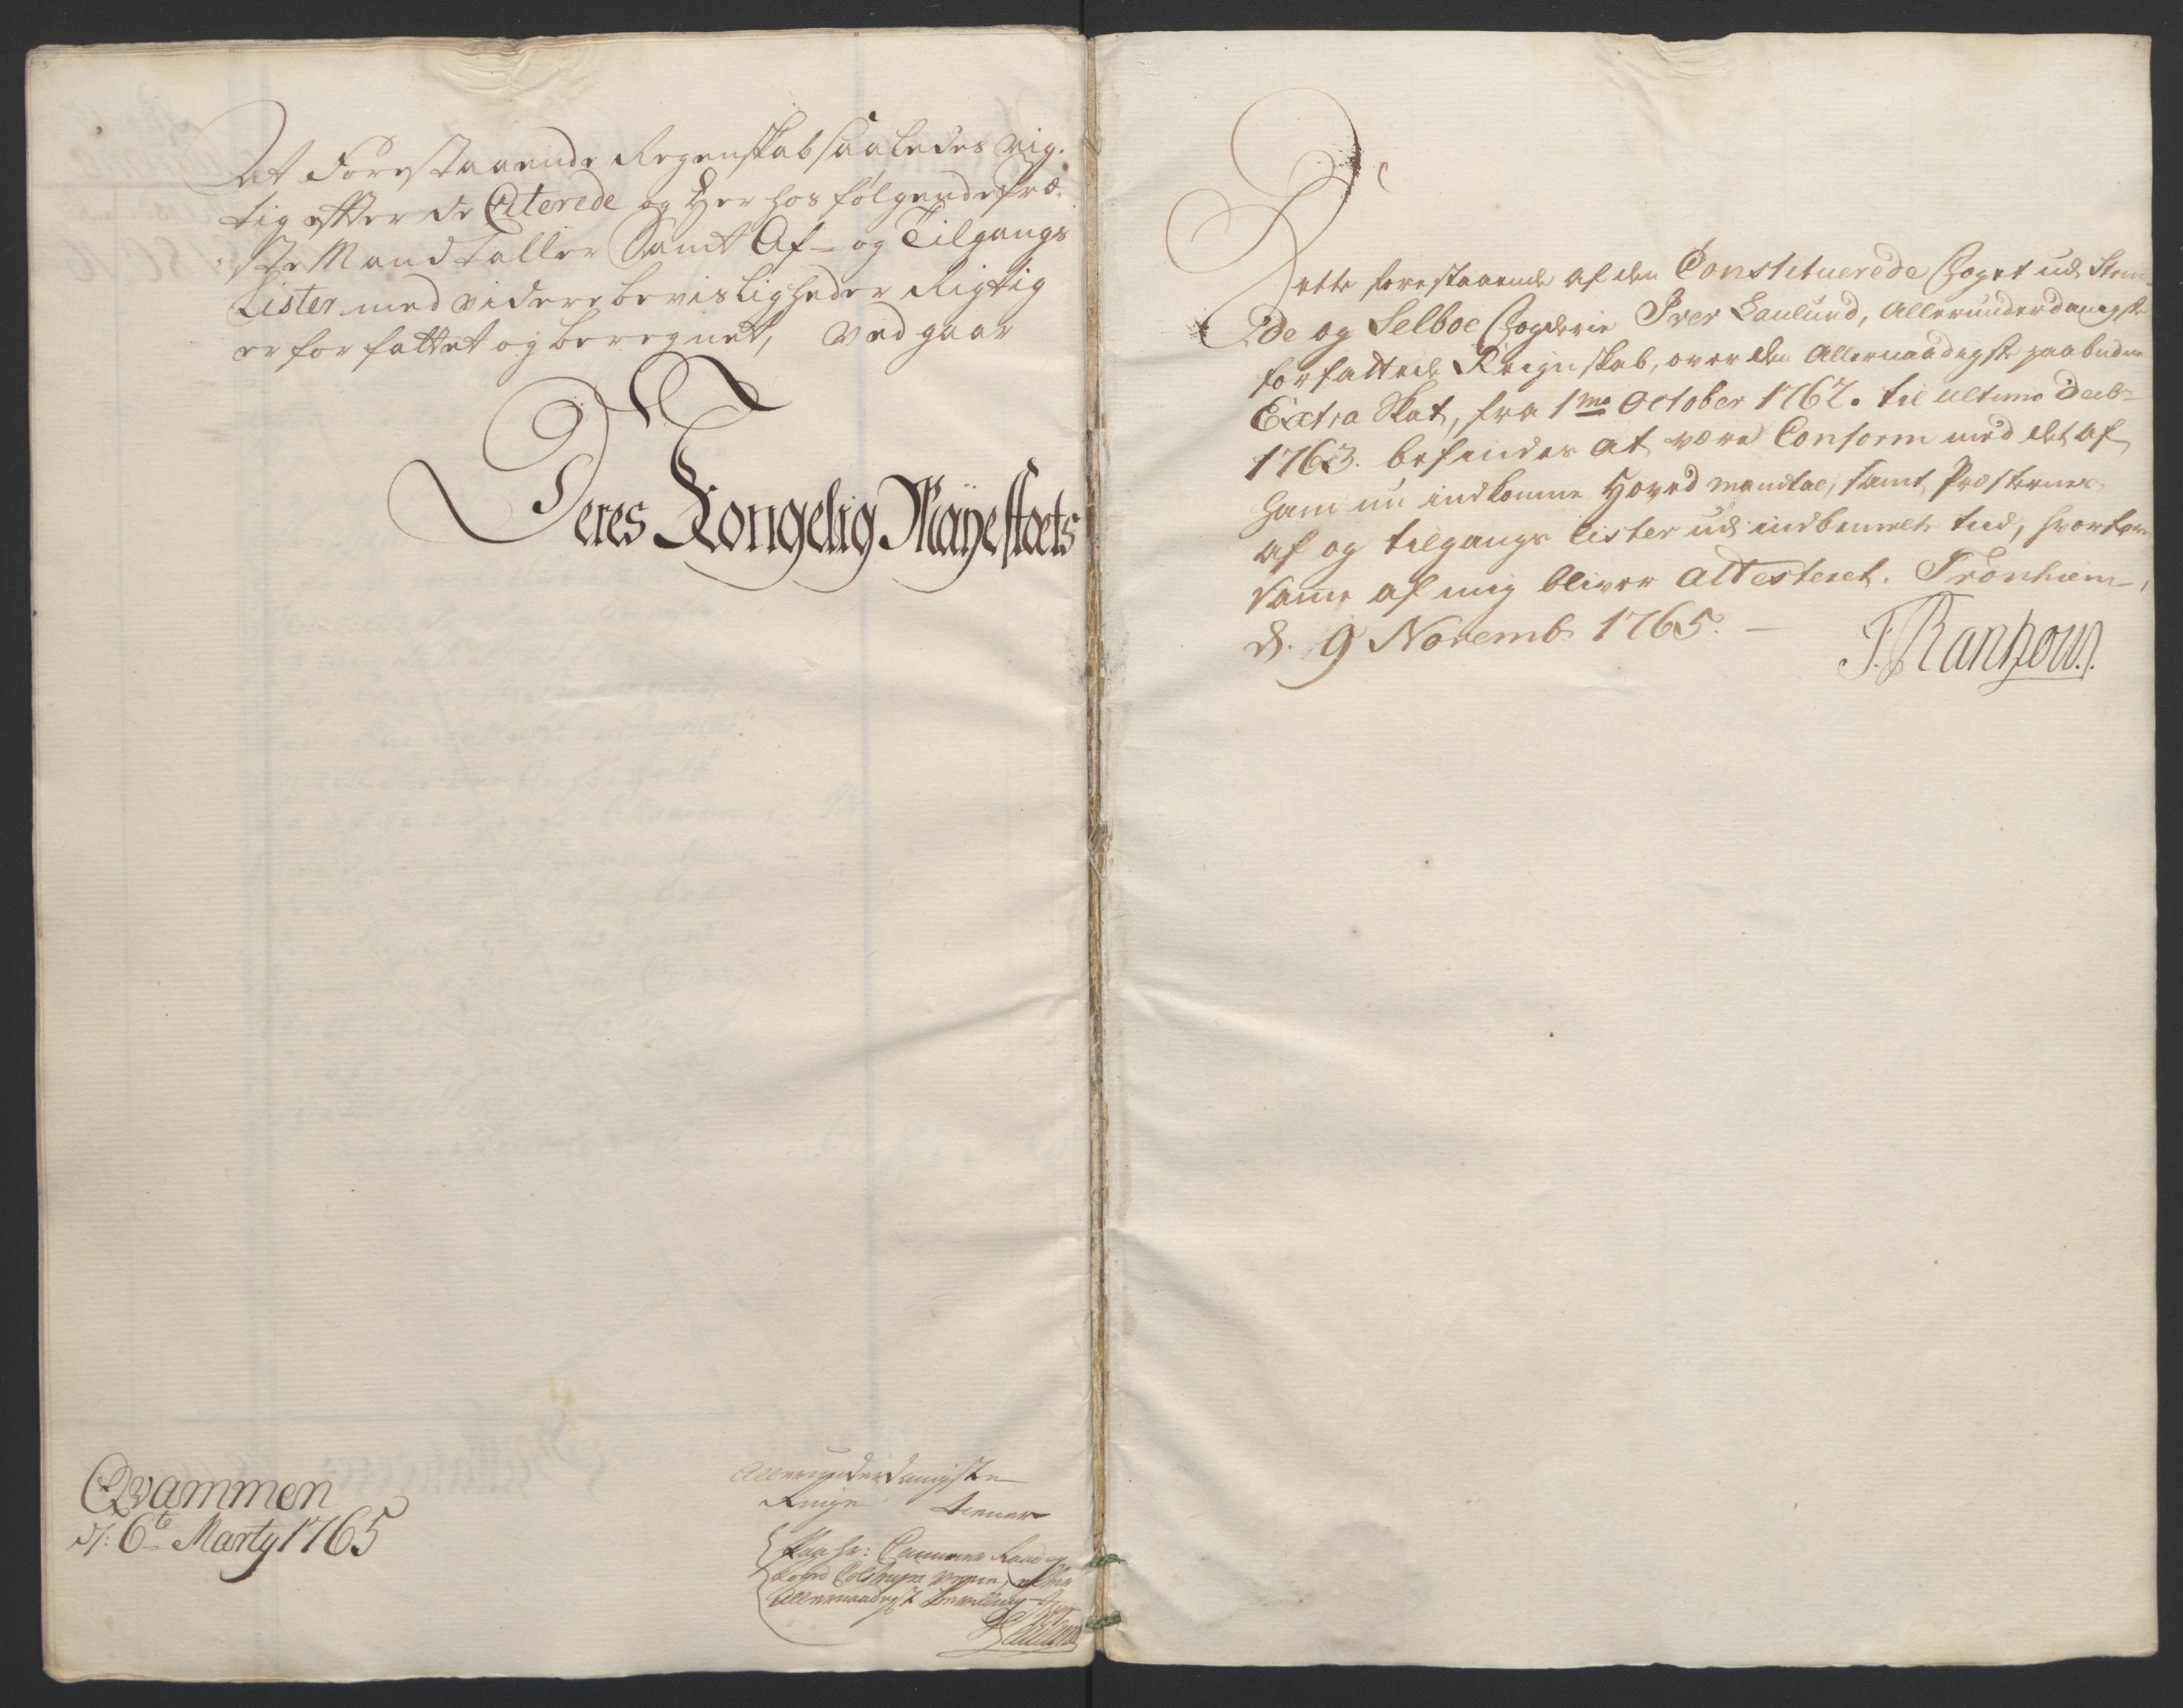 At Forestaaende Regenskab saaledes rig-
tig efter de Citerede og Her hos følgende Præ-
ste Mandtaller Samt Af- og Tilgangs
Lister med videre bevisligheder Rigtig
er forfattet og beregnet, Ved gaar
Deres Kongelig Mayestæts
Qvammen
d: 6te Marty 1765
Allerunderdanigste
Ringe tiener
Paa Hr: Cammer Raad og
Foged Collstrups Vegne, efter
Allernaadigst Bevilling
Dette forestaaende af den Constituerede Foget udi Strin-
de og Selboe Fogderie Iver Laulund, Allerunderdanigste
forfattede Reignskab, over den Allernaadigste paabudne
Extra Skat, fra 1mo October 1762. til ultimo Decb-
1763. befindes at være Conform med det af
ham nu indkomne Hoved mandtal, samt Præsternes
af og tilgangs Lister udi indbemelte tid, hvorfore
samme af mig bliver Attesteret. Tronhiem,
d. 9 Novemb. 1765. –
F. Ranzow.